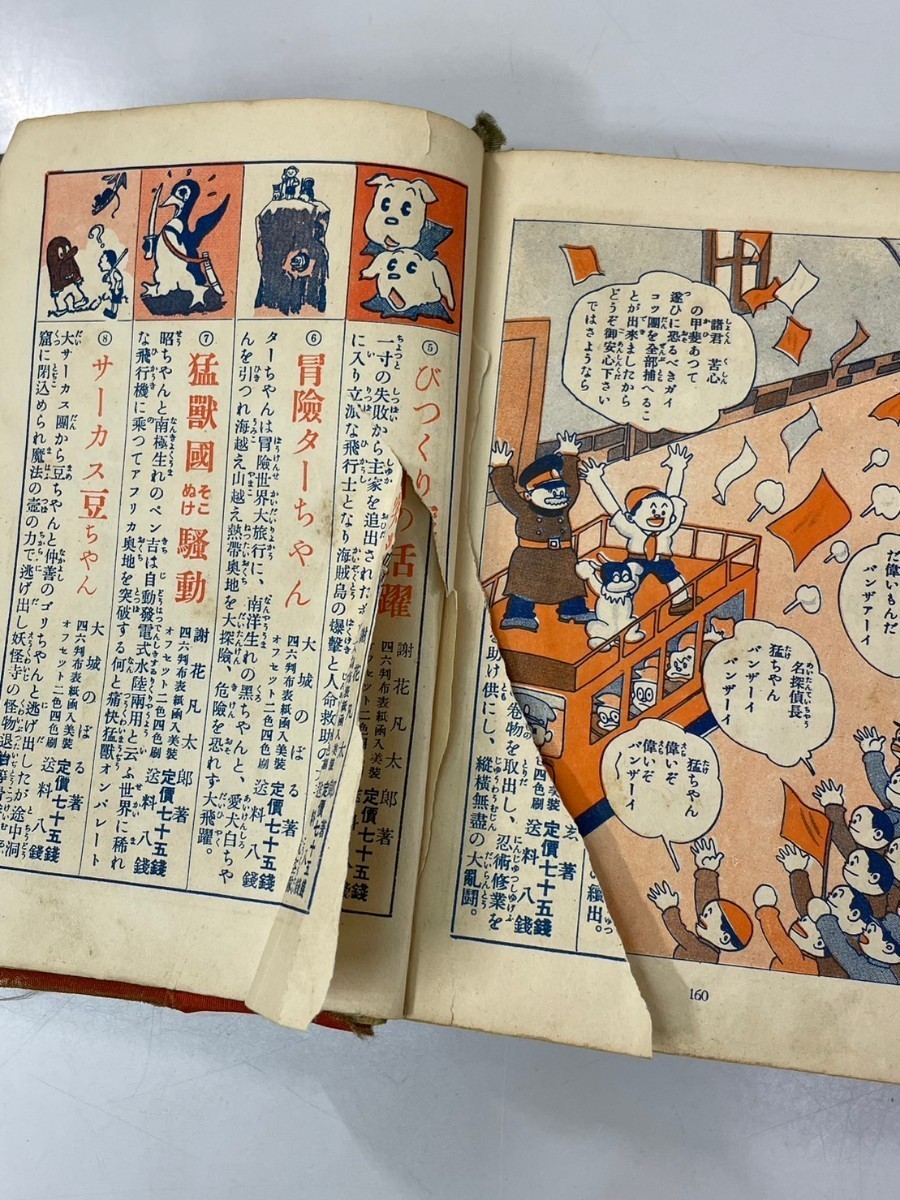 諸君 苦心
の甲斐あつて
遂ひに恐るべきガイ
コツ團を全部捕へるこ
とが出來ましたから
どうぞ御安心下さい
ではさようなら
だ偉いもんだ
バンザアーイ
名探偵長
猛ちやん
バンザーイ
バンザーイ
猛ちやん
偉いぞ
偉いぞ
バンザーイ
160
卷物を取出し、忍術修業を
助け供にし、縱横無盡の大亂闘。
著
四色刷
定價七十五錢
送料八錢
⑤
びつくり
の活躍
謝花凡太郎著
四六判布表紙函入美裝
オフセット二色四色刷
定價七十五錢
一寸の失敗から主家を追出された
に入り立派な飛行士となり海賊島の爆擊と人命救助の
⑥
冒險ターちやん
大城のぼる著
四六判布表紙函入美裝
オフセット二色四色刷
定價七十五錢
送料八錢
ターちやんは冒險世界大旅行に、南洋生れの黑ちやんと、愛犬白ちや
んを引つれ海越え山越え熱帶奥地を大探險、危險を恐れず大飛躍。
⑦
猛獸國そこぬけ騷動
謝花凡太郎著
四六判布表紙函入美裝
オフセット二色四色刷
定價七十五錢
送料八錢
昭ちやんと南極生れのペン吉は自動發電式水陸兩用と云ふ世界に稀れ
な飛行機に乘つてアフリカ奥地を突破する何と痛快猛獸オンパレート
⑧
サーカス豆ちやん
大城のぼる
四六判布表紙函入美裝
オフセット二色四色刷
定價七十五錢
送料八錢
大サーカス團から豆ちやんと仲善のゴリちやんと逃げ出したが途中洞
窟に閉込められ魔法の壺の力で逃げ出し妖怪寺の怪物退治